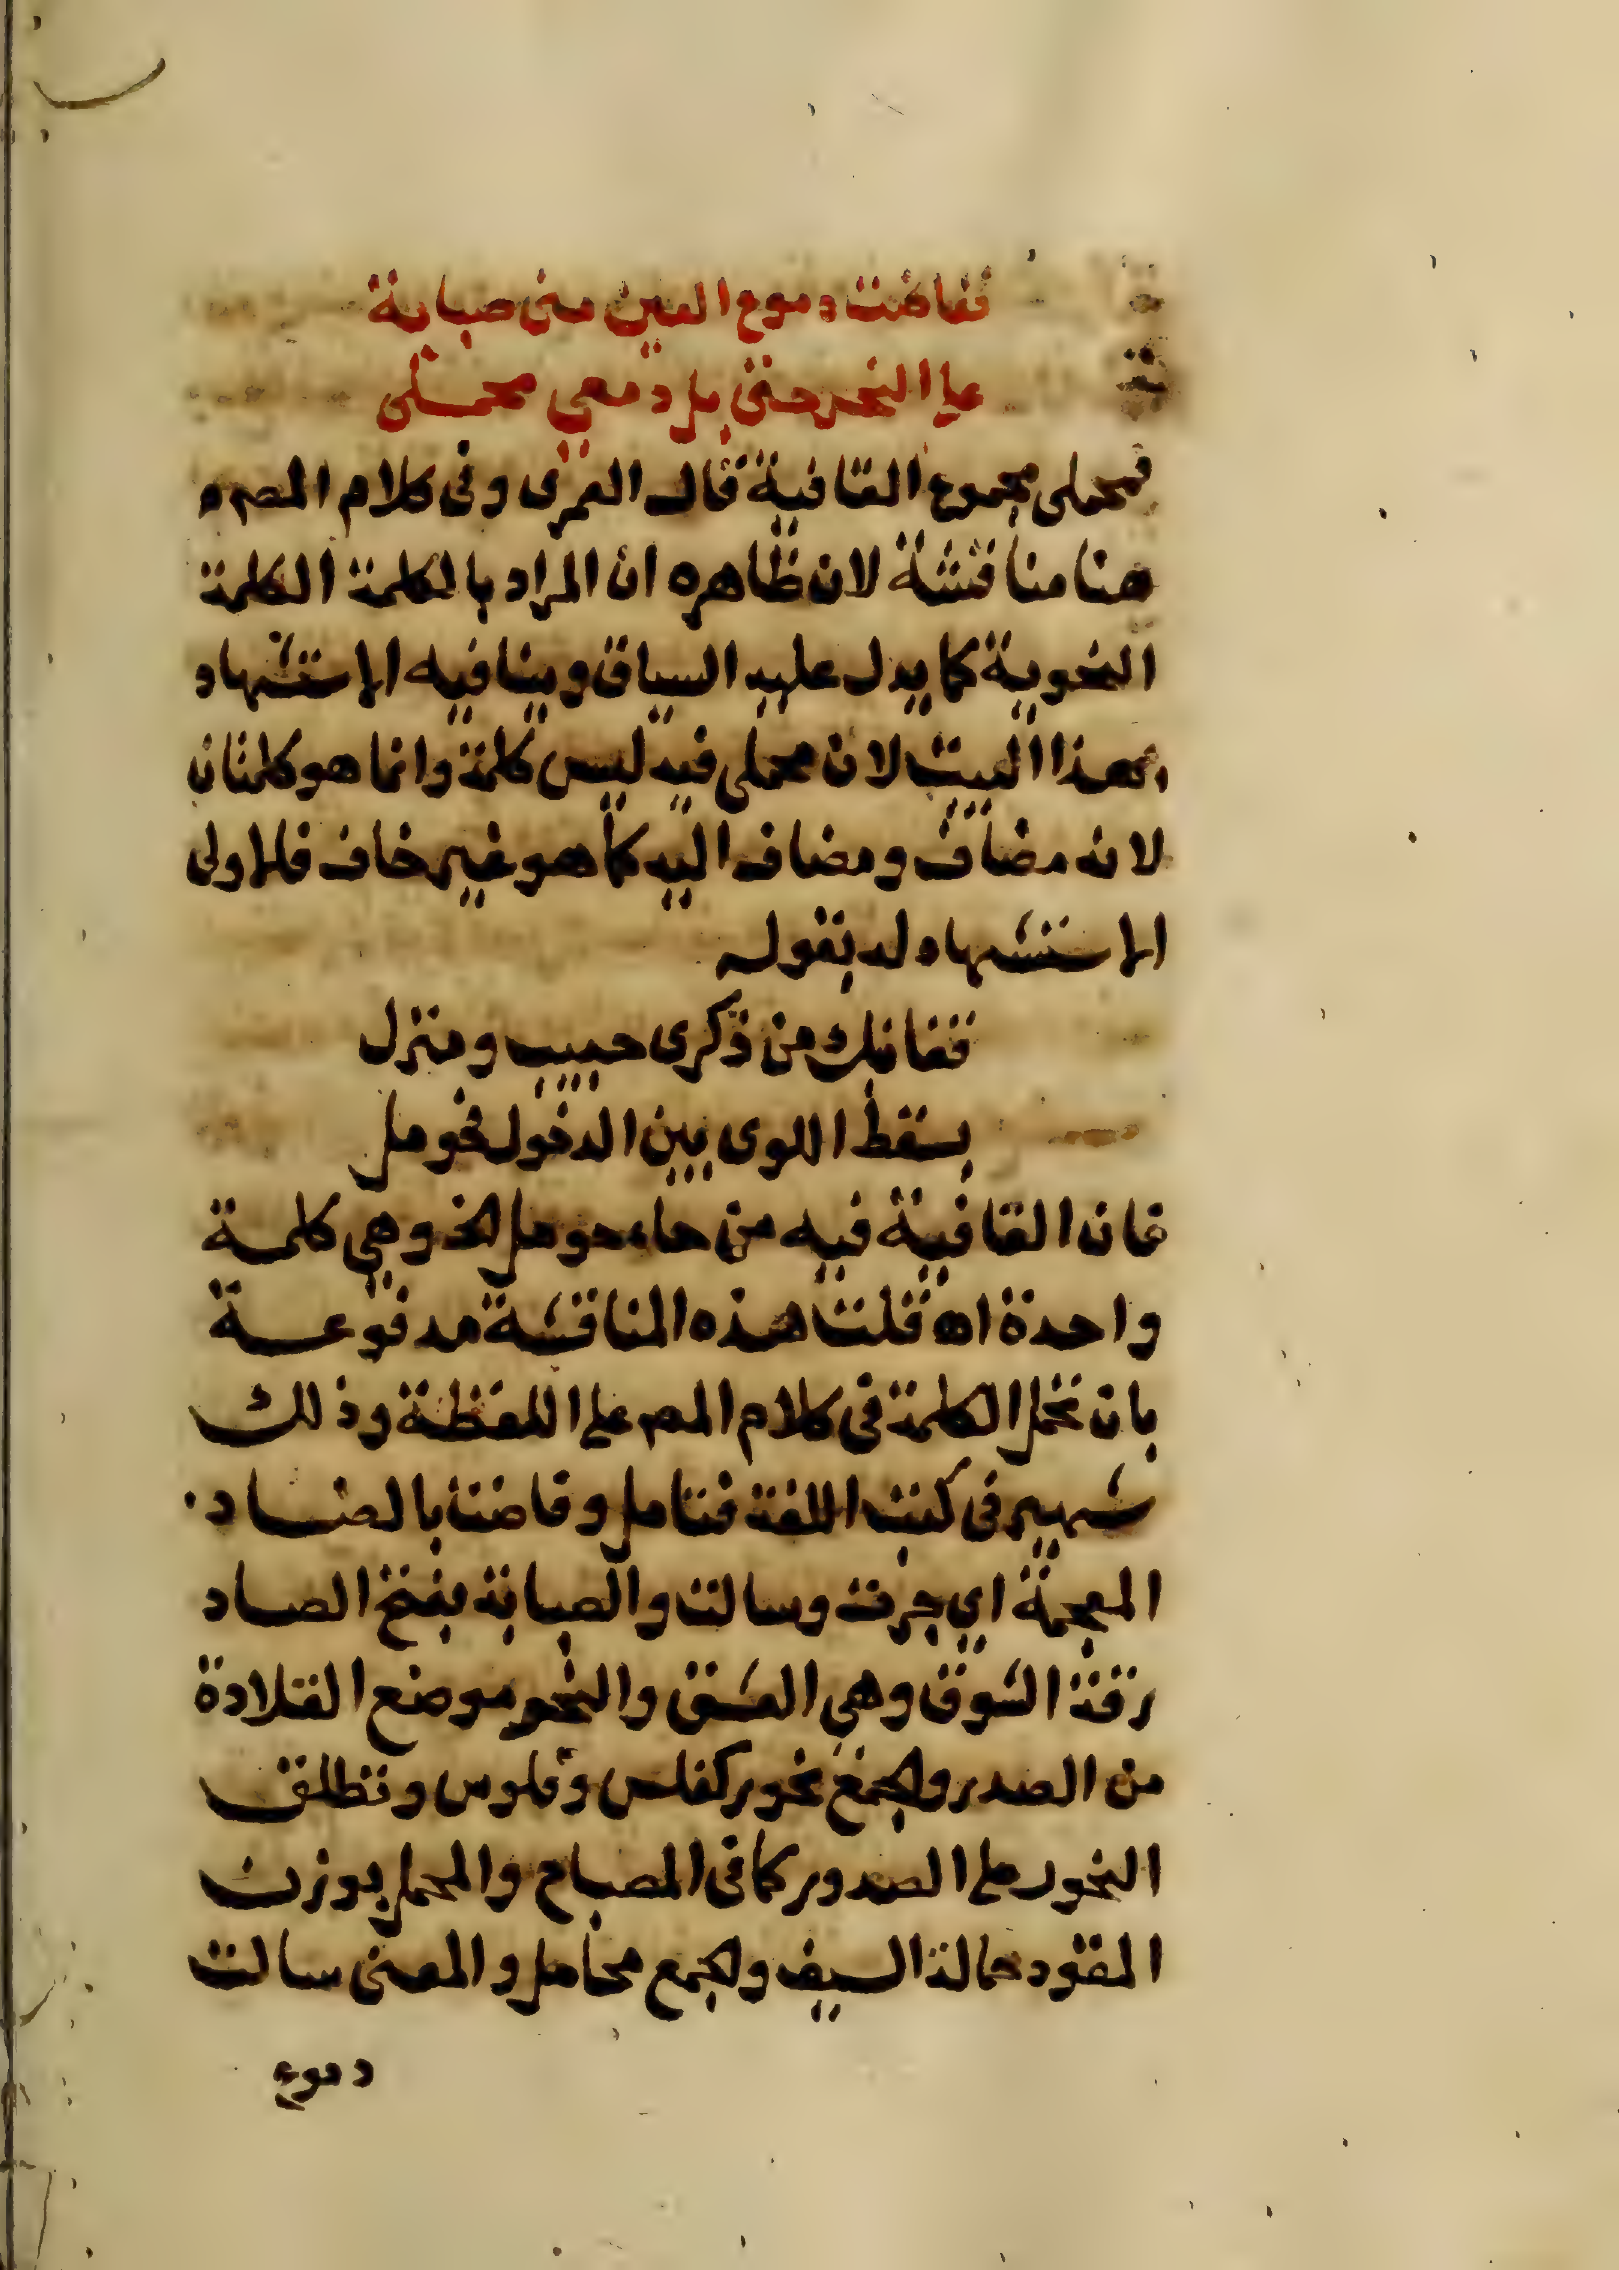 ففاضت دموع العين منى صبابة
على النحر حتى بل دمعي محملى
فمحملى مجموع القافية قال العمرى وفى كلام المصـ
هنا مناقشة لان ظاهره ان المراد بالكلمة الكلمة
النحوية كما يدل عليه السياق وينافيه الاستشهاد
بهذا البيت لان محملى فيه ليس كلمة وانما هو كلمتان
لانه مضاف ومضاف اليه كما هو غير خاف فالاولى
الاستشهاد له بقوله
قفا نبك من ذكرى حبيب ومنزل
بسقط اللوى بين الدخول فحومل
فان القافية فيه من حاء حومل الخ وهي كلمة
واحدة اه قلت هذه المناقشة مدفوعة
بان تحمل الكلمة فى كلام المصـ على اللفظة وذلك
شهير فى كتب اللغة فتامل وفاضت بالضاد
المعجمة اي جرت وسالت والصبابة بفتح الصاد
رقة الشوق وهي العشق والنحر موضع القلادة
من الصدر والجمع نحور كفلس وفلوس وتطلق
النحور على الصدور كما فى المصباح والمحمل بوزن
المقود حمالة السيف والجمع محامل والمعنى سالت
دموع